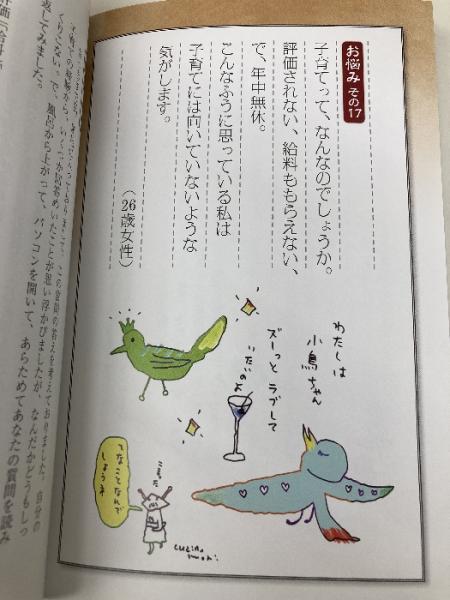 お悩み その17
子育てって、なんなのでしょうか。
評価されない、給料ももらえない、
で、年中無休。
こんなふうに思っている私は
子育てには向いていないような
気がします。
(26歳女性)
わたしは
小鳥ちゃん
ズーっと ラブして
いたいのよ
こまった
てなことなんで
しょうネ
この質問の答えを考えておりました。自分の
いくつか
めいたことが思い浮かびましたが、なんだかどうもしっ
くりこない。で、風呂から上がって、パソコンを開いて、あらためてあなたの質問を読み
返してみました。